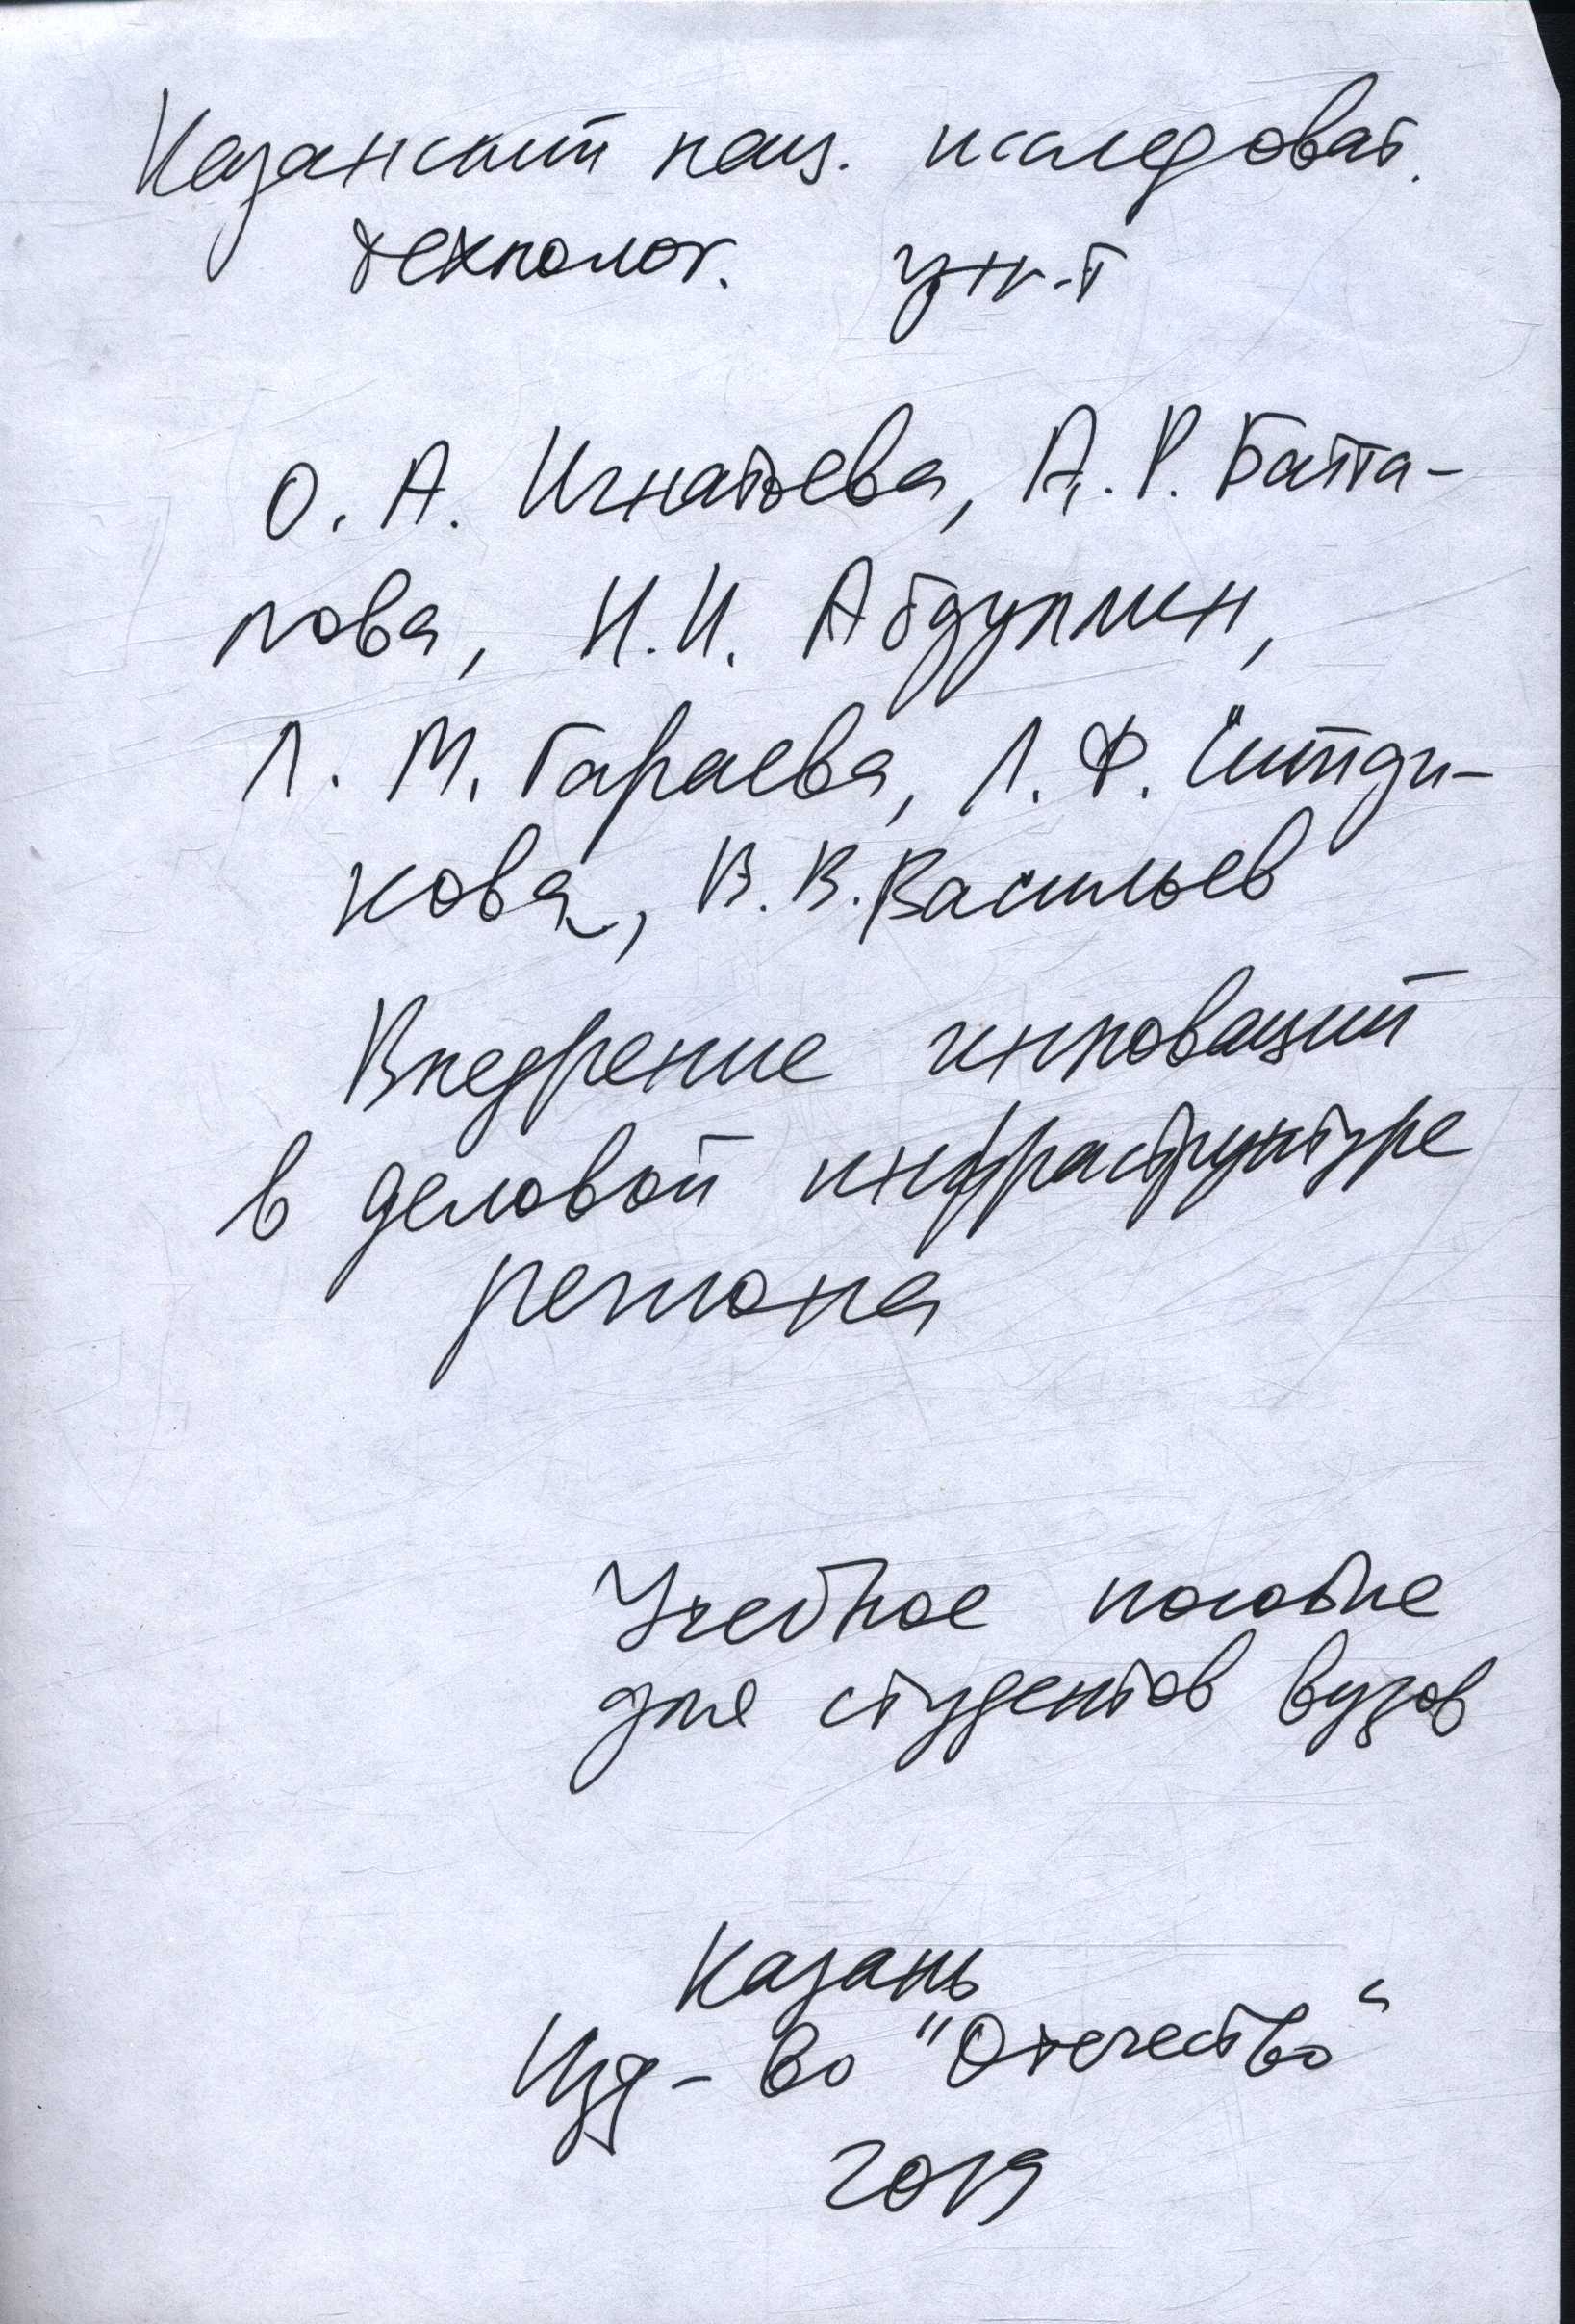 Казанский нац. исследоват.
технолог. ун-т
О. А. Игнатьева, А. Р. Батта-
лова, И. И. Абдуллин,
Л. М. Гараева, Л. Ф. Ситди-
кова, В. В. Васильев
Внедрение инноваций
в деловой инфраструктуре
региона
Учебное пособие
для студентов вузов
Казань
Изд-во "Отечество"
2019